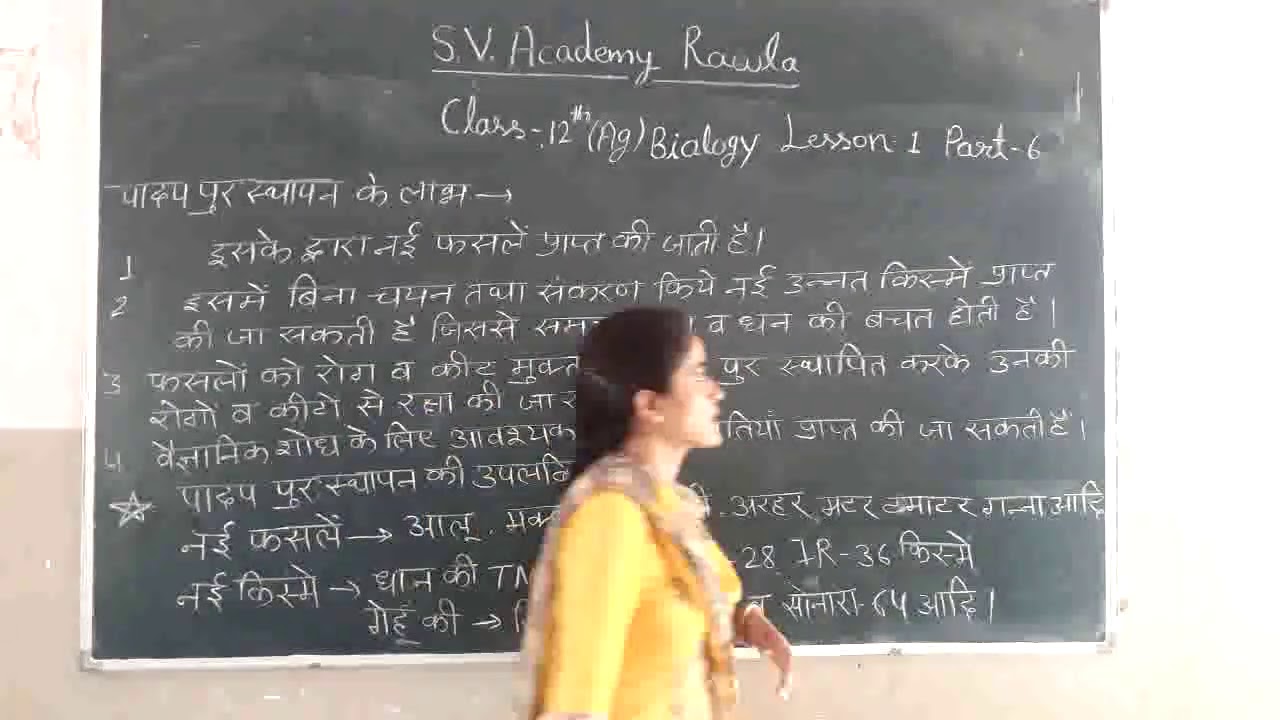 S.V. Academy Rawla
Class-12th (Ag) Biology Lesson 1 Part-6
पादप पुर स्थापन के लाभ →
1 इसके द्वारा नई फसलें प्राप्त की जाती है।
2 इसमें बिना चयन तथा संकरण किये नई उन्नत किस्में प्राप्त
की जा सकती है जिससे व धन की बचत होती है।
3 फसलों को रोग व कीट मुक्त पुर स्थापित करके उनकी
रोगो व कीटो से रक्षा की जा
4 वैज्ञानिक शोध के लिए आवश्यक प्राप्त की जा सकती है।
☆ पादप पुर स्थापन की
नई फसलें → आलू, अरहर, मटर टमाटर गन्ना आदि
नई किस्मे → धान की 28, IR-36 किस्मे
गेहूं की → व सोनारा-64 आदि।